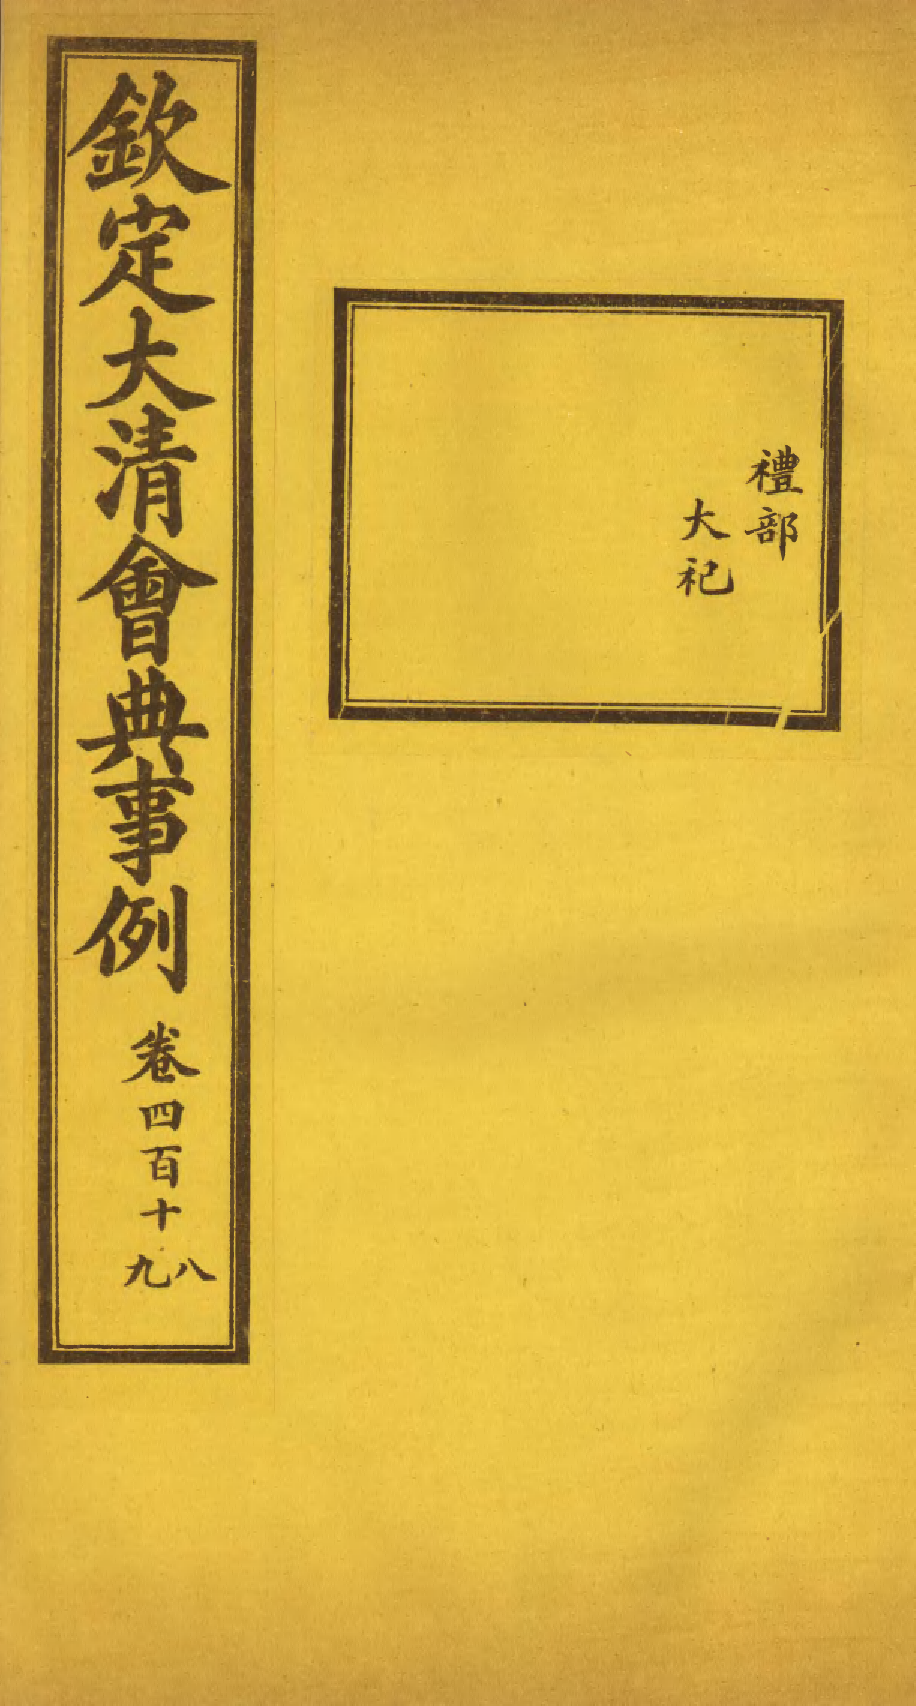 禮部
大祀
欽定大清會典事例 卷四百十八九